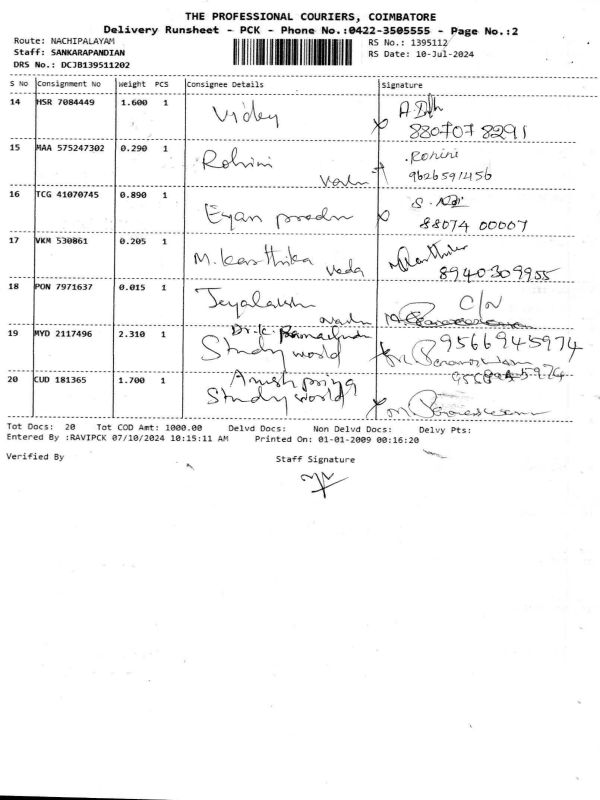 THE PROFESSIONAL COURIERS, COIMBATORE
Delivery Runsheet - PCK - Phone No.:0422-3505555 - Page No.:2
Route: NACHIPALAYAM RS No.: 1395112
Staff: SANKARAPANDIAN RS Date: 10-Jul-2024
DRS No.: DCJB139511202
S No Consignment No Weight PCS Consignee Details Signature
14 HSR 7084449 1.600 1
8807078291
15 MAA 575247302 0.290 1 Rohini Rohini
9626591456
16 TCG 41070745 0.890 1 S.
88074 00007
17 VKM 530861 0.205 1 M. Karthika Veda
8940309955
18 PON 7971637 0.015 1 C/N
19 MYD 2117496 2.310 1 Dr. K. 9566945974
Study world
20 CUD 181365 1.700 1 Anushpriya
Study world
Tot Docs: 20 Tot COD Amt: 1000.00 Delvd Docs: Non Delvd Docs: Delvy Pts:
Entered By :RAVIPCK 07/10/2024 10:15:11 AM Printed On: 01-01-2009 00:16:20
Verified By Staff Signature